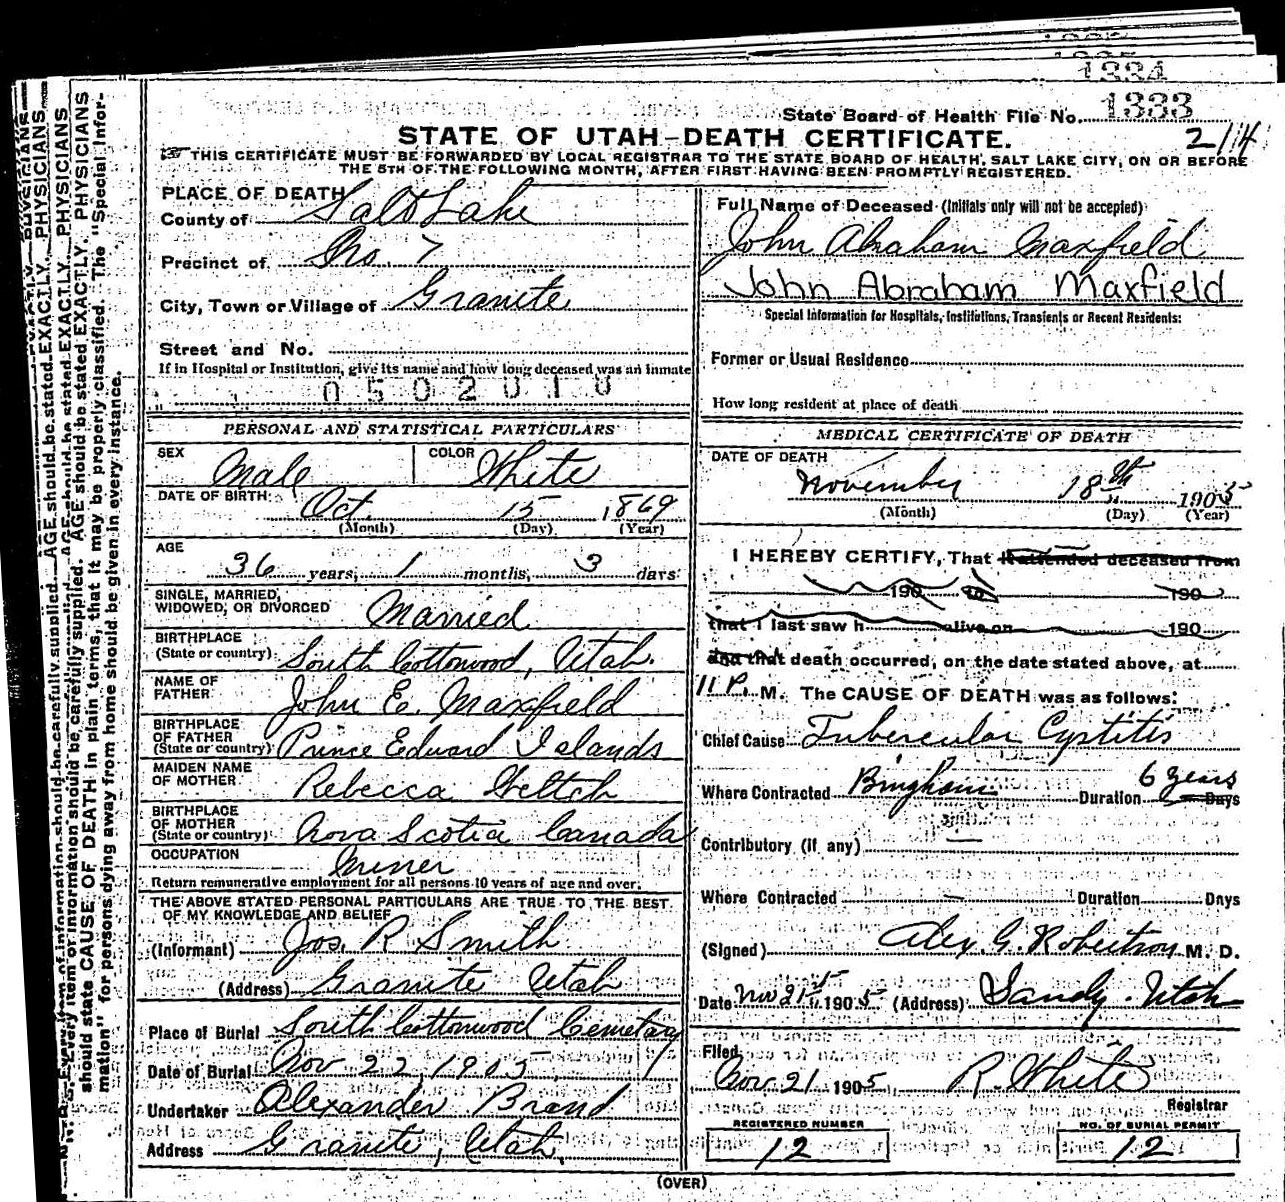 1334
State Board of Health File No. 1333
STATE OF UTAH-DEATH CERTIFICATE.
2/14
THIS CERTIFICATE MUST BE FORWARDED BY LOCAL REGISTRAR TO THE STATE BOARD OF HEALTH, SALT LAKE CITY, ON OR BEFORE
THE 5TH OF THE FOLLOWING MONTH, AFTER FIRST HAVING BEEN PROMPTLY REGISTERED.
PLACE OF DEATH
County of Salt Lake
Precinct of No. 7
City, Town or Village of Granite
Street and No.
If in Hospital or Institution, give its name and how long deceased was an inmate
0502010
PERSONAL AND STATISTICAL PARTICULARS
SEX Male COLOR White
DATE OF BIRTH Oct. 15 1869
(Month) (Day) (Year)
AGE
36 years, 1 months, 3 days
SINGLE, MARRIED,
WIDOWED, OR DIVORCED Married
BIRTHPLACE
(State or country) South Cottonwood, Utah.
NAME OF
FATHER John E. Maxfield
BIRTHPLACE
OF FATHER
(State or country) Prince Edward Islands
MAIDEN NAME
OF MOTHER Rebecca Weltch
BIRTHPLACE
OF MOTHER
(State or country) Nova Scotia Canada
OCCUPATION Miner
Return remunerative employment for all persons 10 years of age and over.
THE ABOVE STATED PERSONAL PARTICULARS ARE TRUE TO THE BEST
OF MY KNOWLEDGE AND BELIEF
(Informant) Jos. R Smith
(Address) Granite Utah
Place of Burial South Cottonwood Cemetary
Date of Burial Nov 22, 1905
Undertaker Alexander Brand
Address Granite, Utah.
Full Name of Deceased (Initials only will not be accepted)
John Abraham Maxfield
John Abraham Maxfield
Special Information for Hospitals, Institutions, Transients or Recent Residents:
Former or Usual Residence
How long resident at place of death
MEDICAL CERTIFICATE OF DEATH
DATE OF DEATH
November 18th 1905
(Month) (Day) (Year)
I HEREBY CERTIFY, That I attended deceased from
190 to 190
that I last saw h alive on 190
and that death occurred, on the date stated above, at
11 P. M. The CAUSE OF DEATH was as follows:
Chief Cause Tubercular Cystitis
Where Contracted Bingham Duration 6 years Days
Contributory (if any) —
Where Contracted — Duration Days
(Signed) Alex. G. Robertson M. D.
Date Nov 21st, 1905 (Address) Sandy. Utah
Filed
Nov. 21 1905 R. White
Registrar
REGISTERED NUMBER
12
NO. OF BURIAL PERMIT
12
(OVER)
N. B. Every item of information should be carefully supplied. AGE should be stated EXACTLY. PHYSICIANS
should state CAUSE OF DEATH in plain terms, that it may be properly classified. The "Special Infor-
mation" for persons dying away from home should be given in every instance.